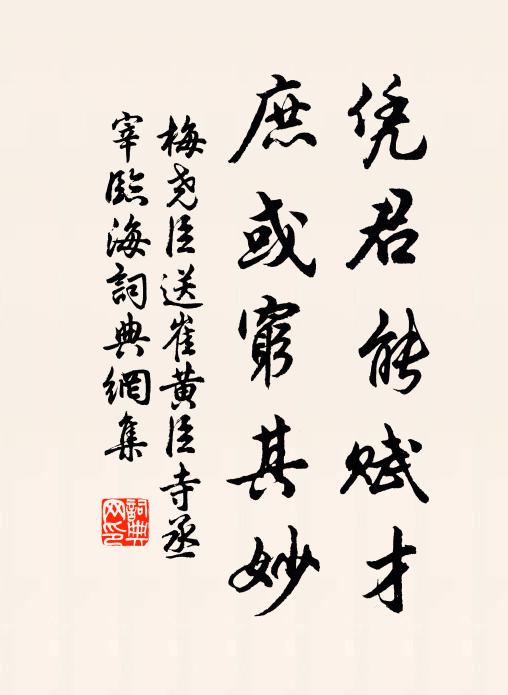 凭君能赋才
庶或窮其妙
梅尧臣送崔黄臣寺丞
宰臨海詞典網集
詞典
网印